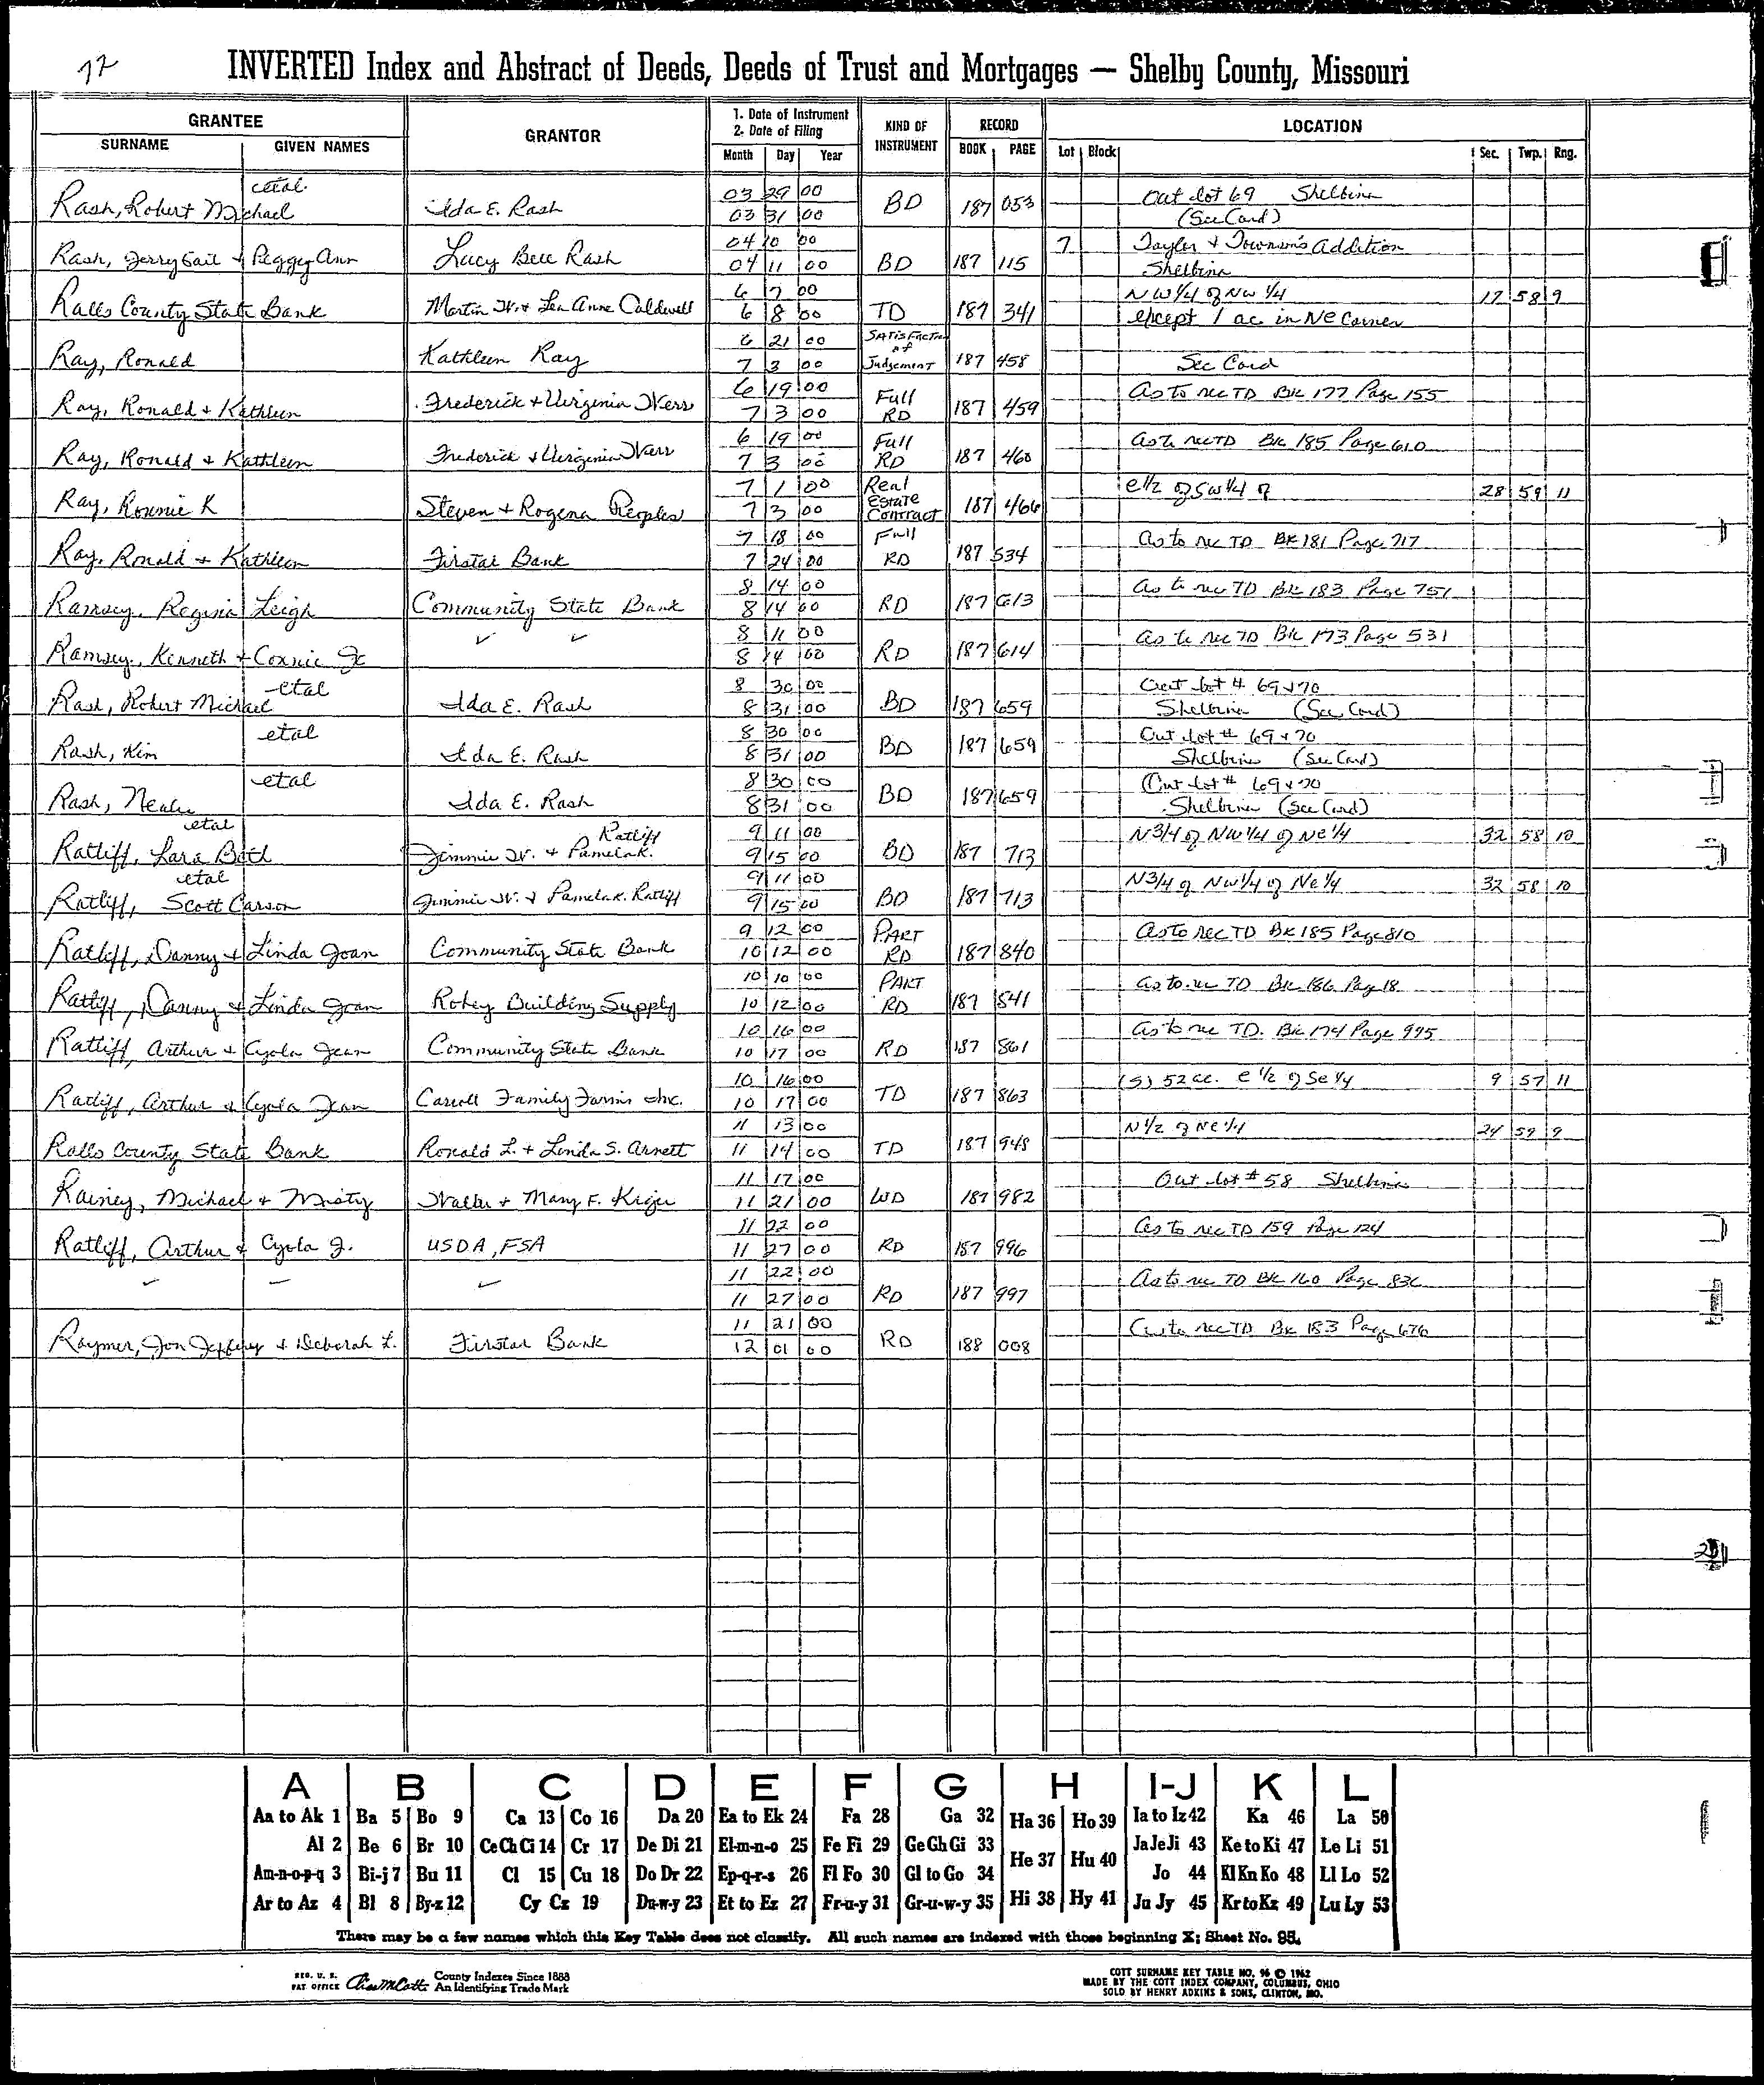 72
INVERTED Index and Abstract of Deeds, Deeds of Trust and Mortgages — Shelby County, Missouri
GRANTEE
SURNAME GIVEN NAMES GRANTOR 1. Date of Instrument 2. Date of Filing Month Day Year KIND OF INSTRUMENT RECORD BOOK PAGE LOCATION Lot Block Sec. Twp. Rng.
etal 03 29 00 Out lot 69 Shelbina
Rash, Robert Michael Ida E. Rash 03 31 00 BD 187 053 (See Card)
04 10 00 7 Taylor & Townson's Addition
Rash, Jerry Gail & Peggy Ann Lucy Bell Rash 04 11 00 BD 187 115 Shelbina
6 7 00 NW 1/4 of NW 1/4 17 58 9
Ralls County State Bank Martin W. & Lea Anne Caldwell 6 8 00 TD 187 341 except 1 ac in NE Corner
6 21 00 Satisfaction of
Ray, Ronald Kathleen Ray 7 3 00 Judgement 187 458 See Card
6 19 00 Full As to rec TD Bk 177 Page 155
Ray, Ronald & Kathleen Frederick & Virginia 7 3 00 RD 187 459
6 19 00 Full As to rec TD Bk 185 Page 610
Ray, Ronald & Kathleen Frederick & Virginia 7 3 00 RD 187 460
7 1 00 Real Estate E 1/2 of SW 1/4 of 28 59 11
Ray, Ronnie K Steven & Rogena Peoples 7 3 00 Contract 187 466
7 18 00 Full As to rec TD BK 181 Page 717
Ray, Ronald & Kathleen Firstar Bank 7 24 00 RD 187 534
8 14 00 As to rec TD Bk 183 Page 751
Ramsey, Regina Leigh Community State Bank 8 14 00 RD 187 613
✓ ✓ 8 11 00 As to rec TD Bk 173 Page 531
Ramsey, Kenneth & Connie Jo 8 14 00 RD 187 614
etal 8 30 00 Out lot # 69 & 70
Rash, Robert Michael Ida E. Rash 8 31 00 BD 187 659 Shelbina (See Card)
etal 8 30 00 Out lot # 69 & 70
Rash, Kim Ida E. Rash 8 31 00 BD 187 659 Shelbina (See Card)
etal 8 30 00 Out lot # 69 & 70
Rash, Ida E. Rash 8 31 00 BD 187 659 Shelbina (See Card)
etal Ratliff 9 11 00 N 3/4 of NW 1/4 of NE 1/4 32 58 10
Ratliff, Lara Beth Jimmie W. & Pamela K. 9 15 00 BD 187 713
etal 9 11 00 N 3/4 of NW 1/4 of NE 1/4 32 58 10
Ratliff, Scott Carson Jimmie W. & Pamela K. Ratliff 9 15 00 BD 187 713
9 12 00 PART As to rec TD BK 185 Page 810
Ratliff, Danny & Linda Joan Community State Bank 10 12 00 RD 187 840
10 10 00 PART As to rec TD Bk 186 Page 18
Ratliff, Danny & Linda Joan Robey Building Supply 10 12 00 RD 187 841
10 16 00 As to rec TD. Bk 174 Page 995
Ratliff, Arthur & Cyola Jean Community State Bank 10 17 00 RD 187 861
10 16 00 (S) 52 ac. E 1/2 of SE 1/4 9 57 11
Ratliff, Arthur & Cyola Jean Carroll Family Farms Inc. 10 17 00 TD 187 863
11 13 00 N 1/2 of NE 1/4 24 59 9
Ralls County State Bank Ronald L. & Linda S. Arnett 11 14 00 TD 187 948
11 17 00 Out lot # 58 Shelbina
Rainey, Michael & Misty & Mary F. 11 21 00 WD 187 982
11 22 00 As to rec TD 159 Page 124
Ratliff, Arthur & Cyola J. USDA, FSA 11 27 00 RD 187 996
✓ ✓ 11 22 00 As to rec TD BK 160 Page 836
11 27 00 RD 187 997
11 21 00 As to rec TD Bk 183 Page 676
Raymer, Jon Jeffery & Deborah L. Firstar Bank 12 01 00 RD 188 008
A B C D E F G H I-J K L
Aa to Ak 1 Ba 5 Bo 9 Ca 13 Co 16 Da 20 Ea to Ek 24 Fa 28 Ga 32 Ha 36 Ho 39 Ia to Iz 42 Ka 46 La 50
Al 2 Be 6 Br 10 Ce Ch Ci 14 Cr 17 De Di 21 El-m-n-o 25 Fe Fi 29 Ge Gh Gi 33 He 37 Hu 40 Ja Je Ji 43 Ke to Ki 47 Le Li 51
Am-n-o-p-q 3 Bi-j 7 Bu 11 Cl 15 Cu 18 Do Dr 22 Ep-q-r-s 26 Fl Fo 30 Gl to Go 34 Jo 44 Kl Kn Ko 48 Ll Lo 52
Ar to Az 4 Bl 8 By-z 12 Cy Cz 19 Du-w-y 23 Et to Ez 27 Fr-u-y 31 Gr-u-w-y 35 Hi 38 Hy 41 Ju Jy 45 Kr to Kz 49 Lu Ly 53
There may be a few names which this Key Table does not classify. All such names are indexed with those beginning X; Sheet No. 95.
REG. U. S. PAT OFFICE County Indexes Since 1888 An Identifying Trade Mark
COTT SURNAME KEY TABLE NO. 96 © 1962
MADE BY THE COTT INDEX COMPANY, COLUMBUS, OHIO
SOLD BY HENRY ADKINS & SONS, CLINTON, MO.